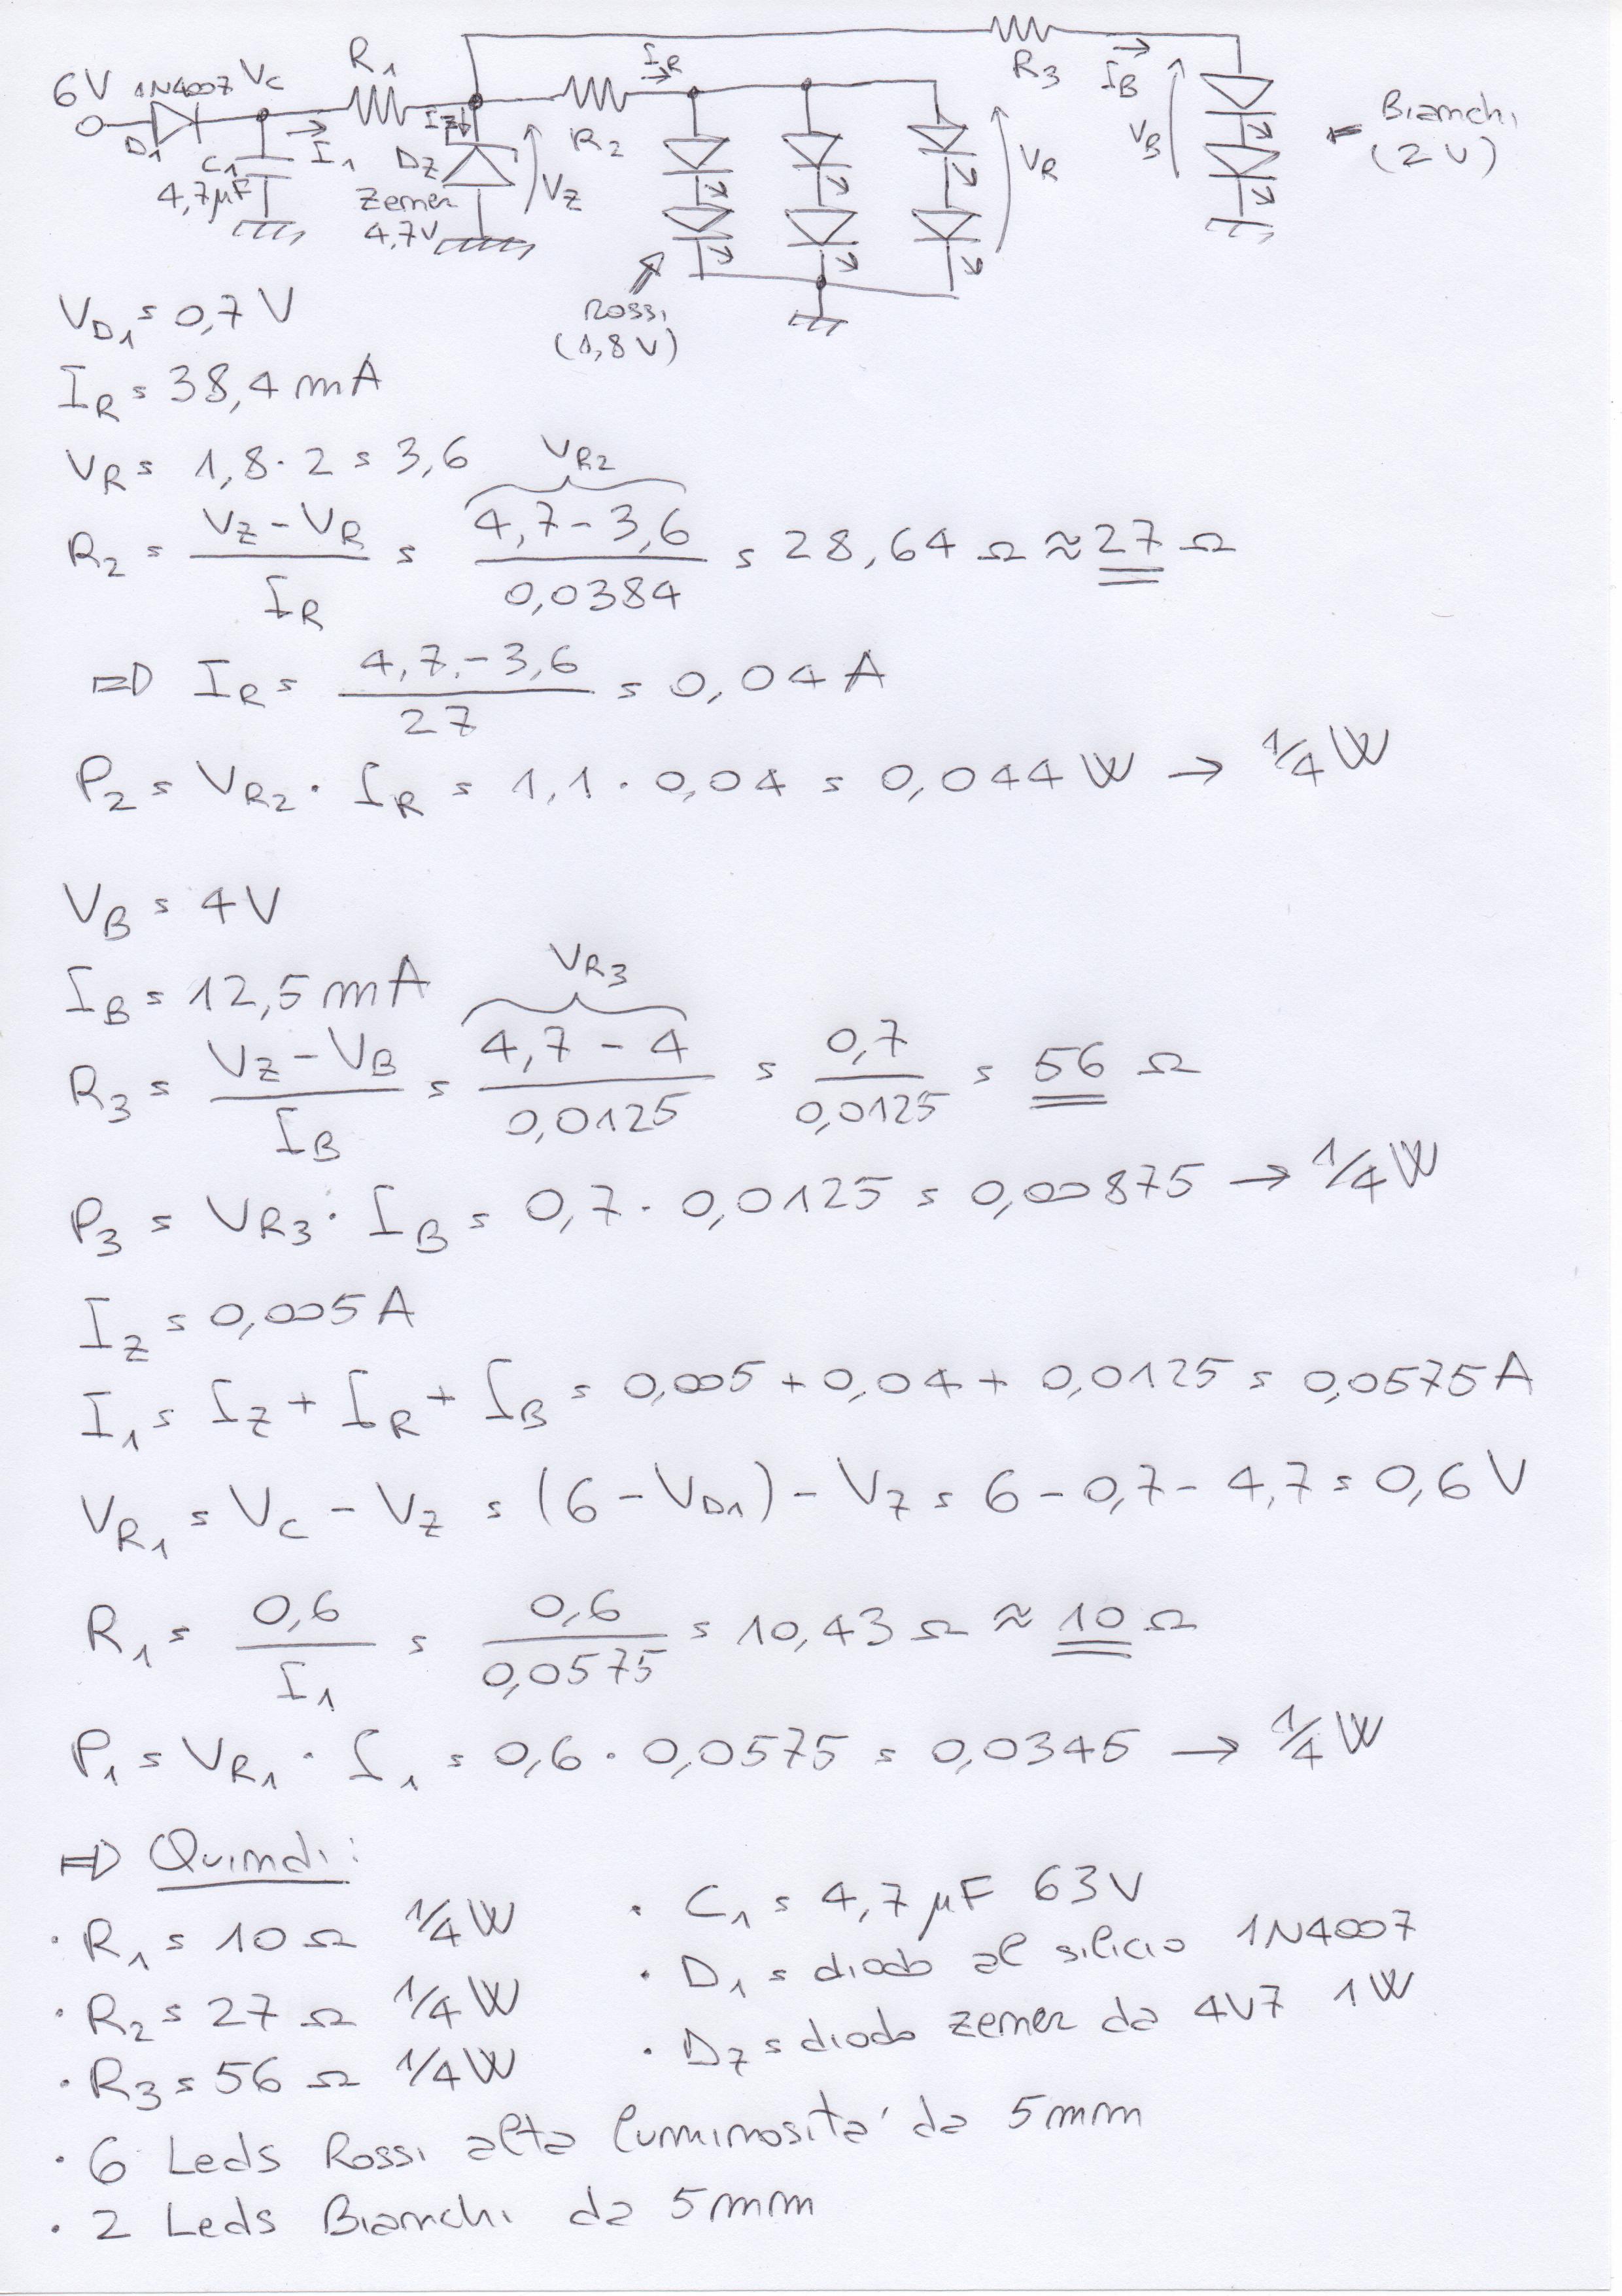 6V 1N4007 Vc R1 IR R3 IB
D1 C1 I1 IZ DZ VZ R2 VR VB Bianchi
4,7µF Zener (2V)
4,7V
Rossi
(1,8V)
VD1 = 0,7 V
IR = 38,4 mA
VR = 1,8 · 2 = 3,6
VR2
R2 = (VZ - VR)/IR = (4,7 - 3,6)/0,0384 = 28,64 Ω ≈ 27 Ω
⇒ IR = (4,7 - 3,6)/27 = 0,04 A
P2 = VR2 · IR = 1,1 · 0,04 = 0,044 W → 1/4 W
VB = 4V
IB = 12,5 mA
VR3
R3 = (VZ - VB)/IB = (4,7 - 4)/0,0125 = 0,7/0,0125 = 56 Ω
P3 = VR3 · IB = 0,7 · 0,0125 = 0,00875 → 1/4 W
IZ = 0,005 A
I1 = IZ + IR + IB = 0,005 + 0,04 + 0,0125 = 0,0575 A
VR1 = VC - VZ = (6 - VD1) - VZ = 6 - 0,7 - 4,7 = 0,6 V
R1 = 0,6/I1 = 0,6/0,0575 = 10,43 Ω ≈ 10 Ω
P1 = VR1 · I1 = 0,6 · 0,0575 = 0,0345 → 1/4 W
⇒ Quindi:
· R1 = 10 Ω 1/4 W
· R2 = 27 Ω 1/4 W
· R3 = 56 Ω 1/4 W
· C1 = 4,7 µF 63V
· D1 = diodo al silicio 1N4007
· DZ = diodo zener da 4V7 1W
· 6 Leds Rossi alta luminosita' da 5mm
· 2 Leds Bianchi da 5mm